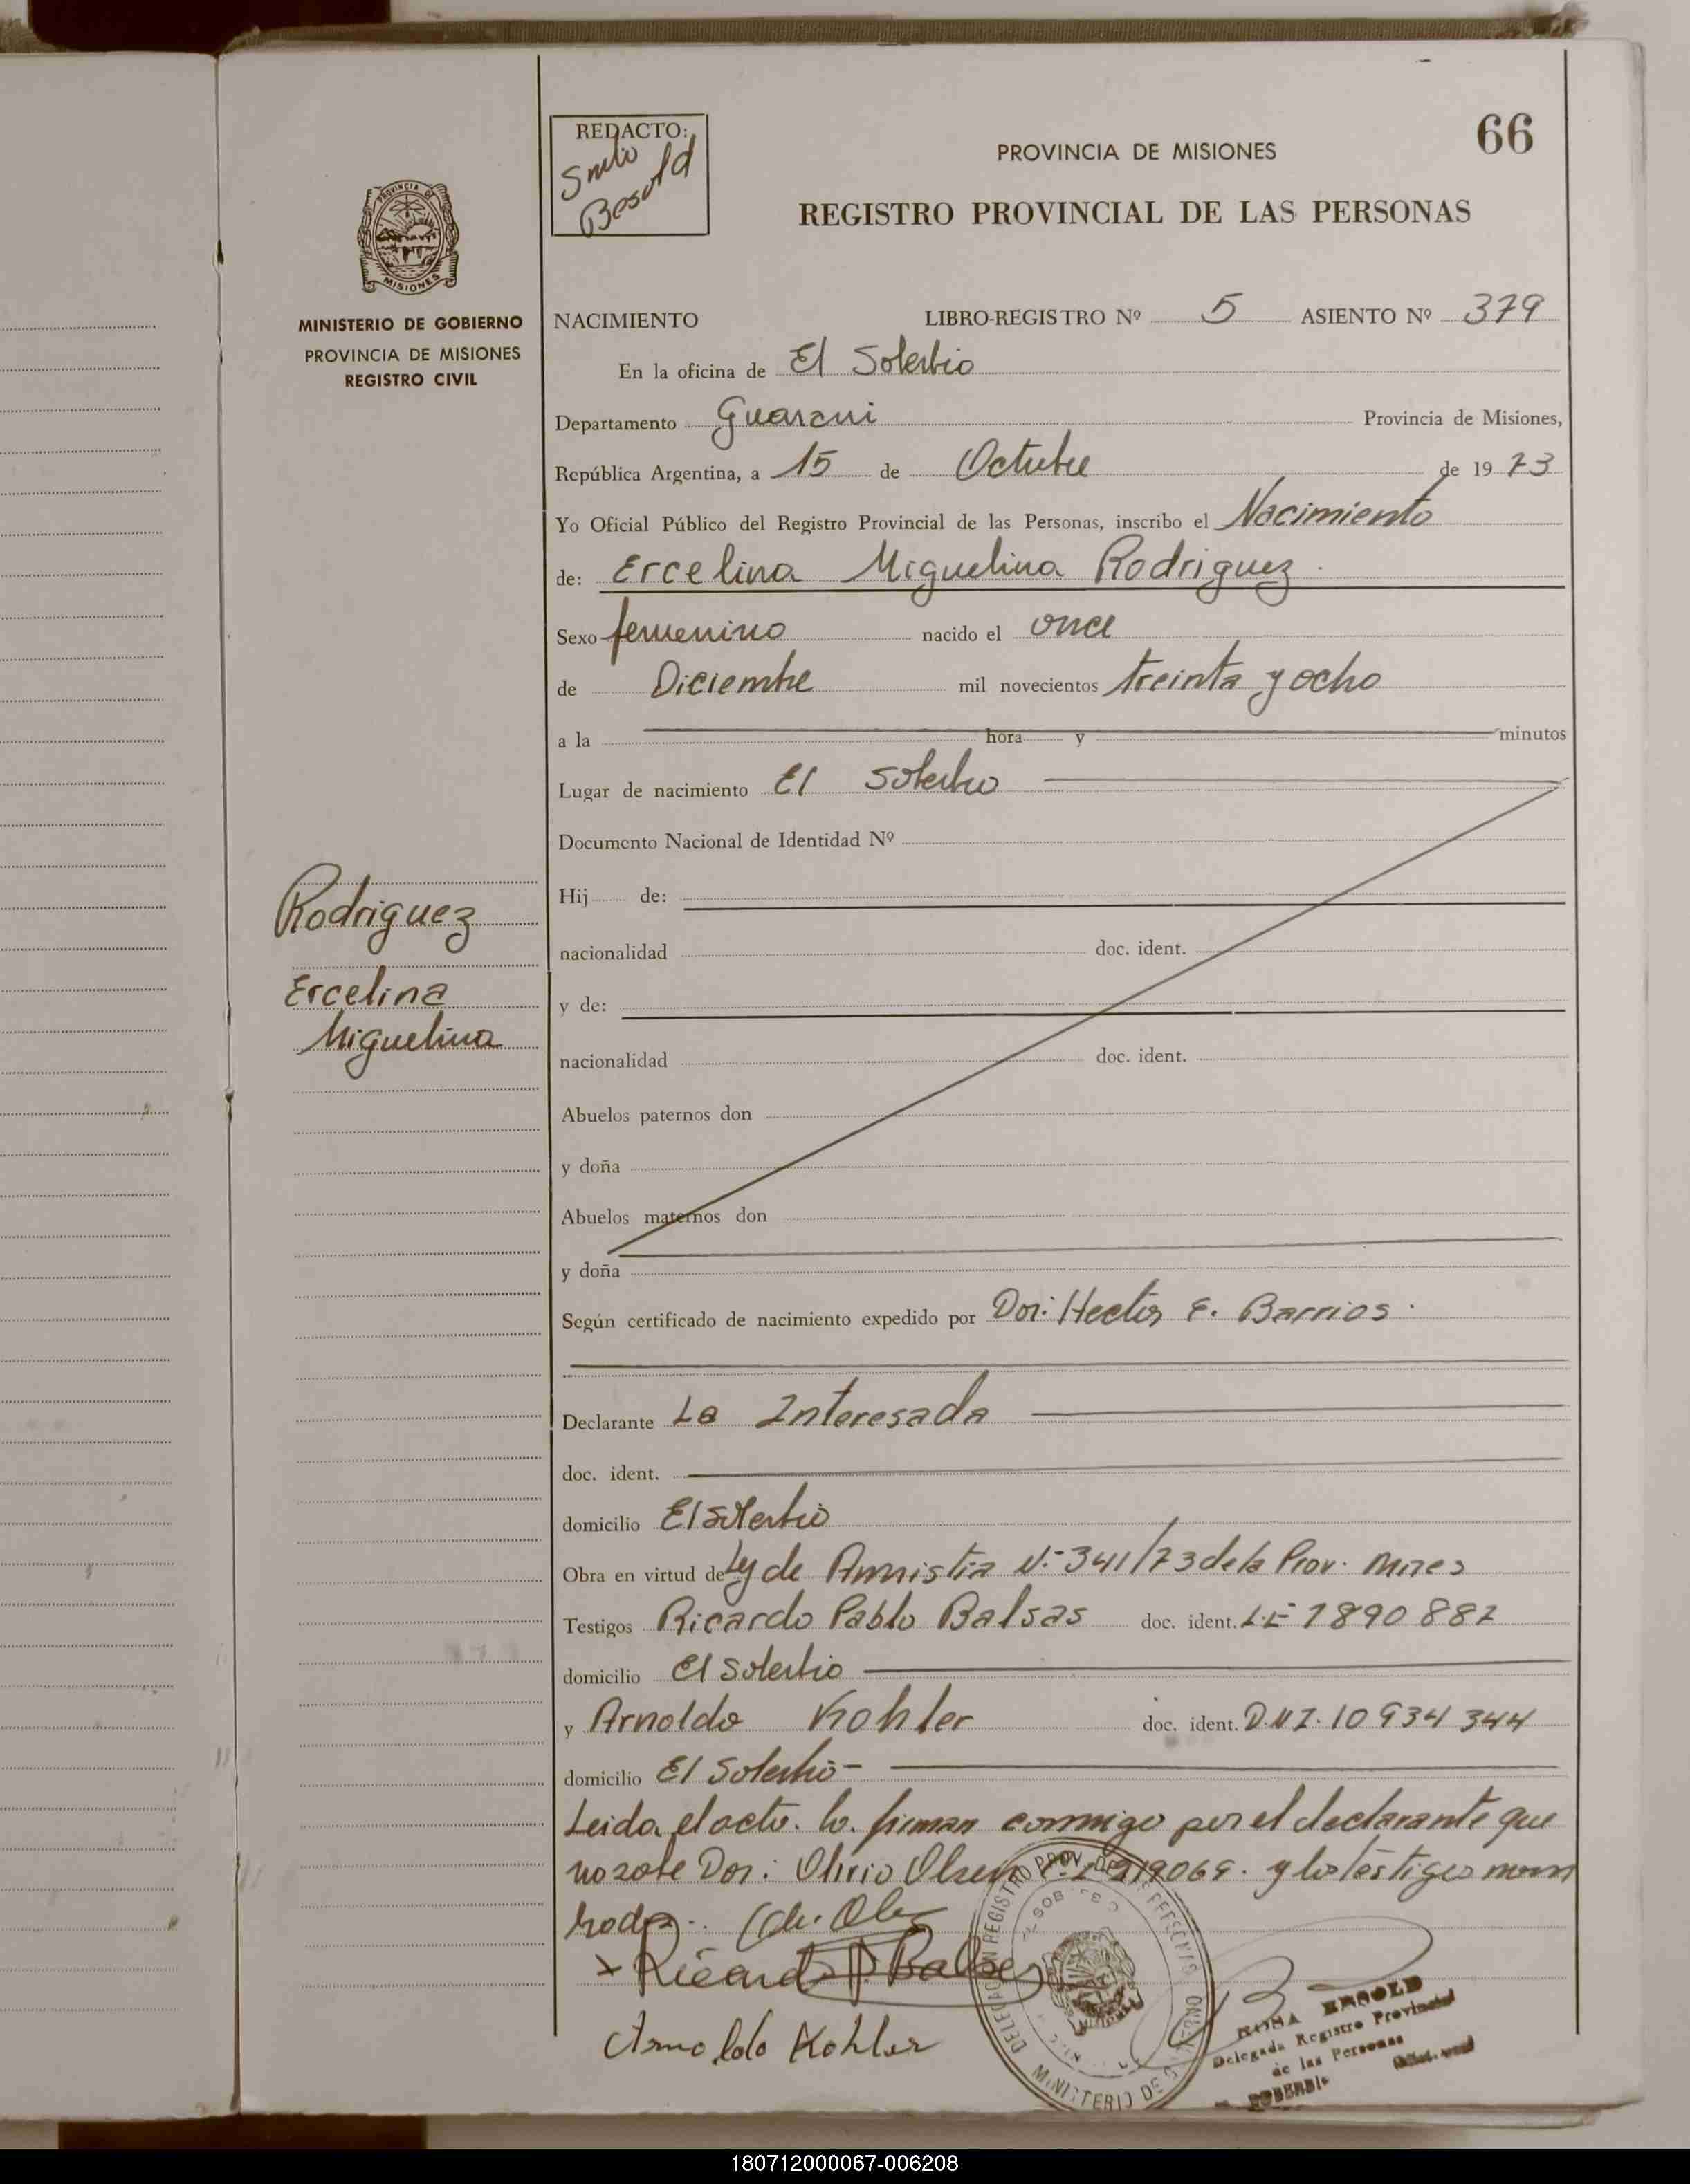 66
REDACTO:
Besold
PROVINCIA DE MISIONES
REGISTRO PROVINCIAL DE LAS PERSONAS
PROVINCIA DE
MISIONES
MINISTERIO DE GOBIERNO
PROVINCIA DE MISIONES
REGISTRO CIVIL
NACIMIENTO LIBRO-REGISTRO Nº 5 ASIENTO Nº 379
En la oficina de El Soberbio
Departamento Guarani Provincia de Misiones,
República Argentina, a 15 de Octubre de 19 73
Yo Oficial Público del Registro Provincial de las Personas, inscribo el Nacimiento
de: Ercelina Miguelina Rodriguez.
Sexo femenino nacido el once
de Diciembre mil novecientos treinta y ocho
a la hora y minutos
Lugar de nacimiento El Soberbio
Documento Nacional de Identidad Nº
Hij de:
nacionalidad doc. ident.
y de:
nacionalidad doc. ident.
Abuelos paternos don
y doña
Abuelos maternos don
y doña
Rodriguez
Ercelina
Miguelina
Según certificado de nacimiento expedido por Dor: Hector E. Barrios.
Declarante La Interesada
doc. ident.
domicilio El Soberbio
Obra en virtud de Ley de Amnistia N.- 341/73 de la Prov. Mnes
Testigos Ricardo Pablo Balsas doc. ident. L.E 7890887
domicilio El Soberbio
y Arnoldo Kohler doc. ident. D.N.I. 10 934 344
domicilio El Soberbio-
Leida el acta. la firman conmigo por el declarante que
no sabe Dor: Olirio Olsen 219069. y los testigos nom
brados..
x Ricardo P. Balsas
Arnoldo Kohler
DELEGACION REGISTRO PROV. DE
MINISTERIO DE GOBIERNO
ROSA BESOLD
Delegada Registro Provincial
de las Personas
SOBERBIO
180712000067-006208